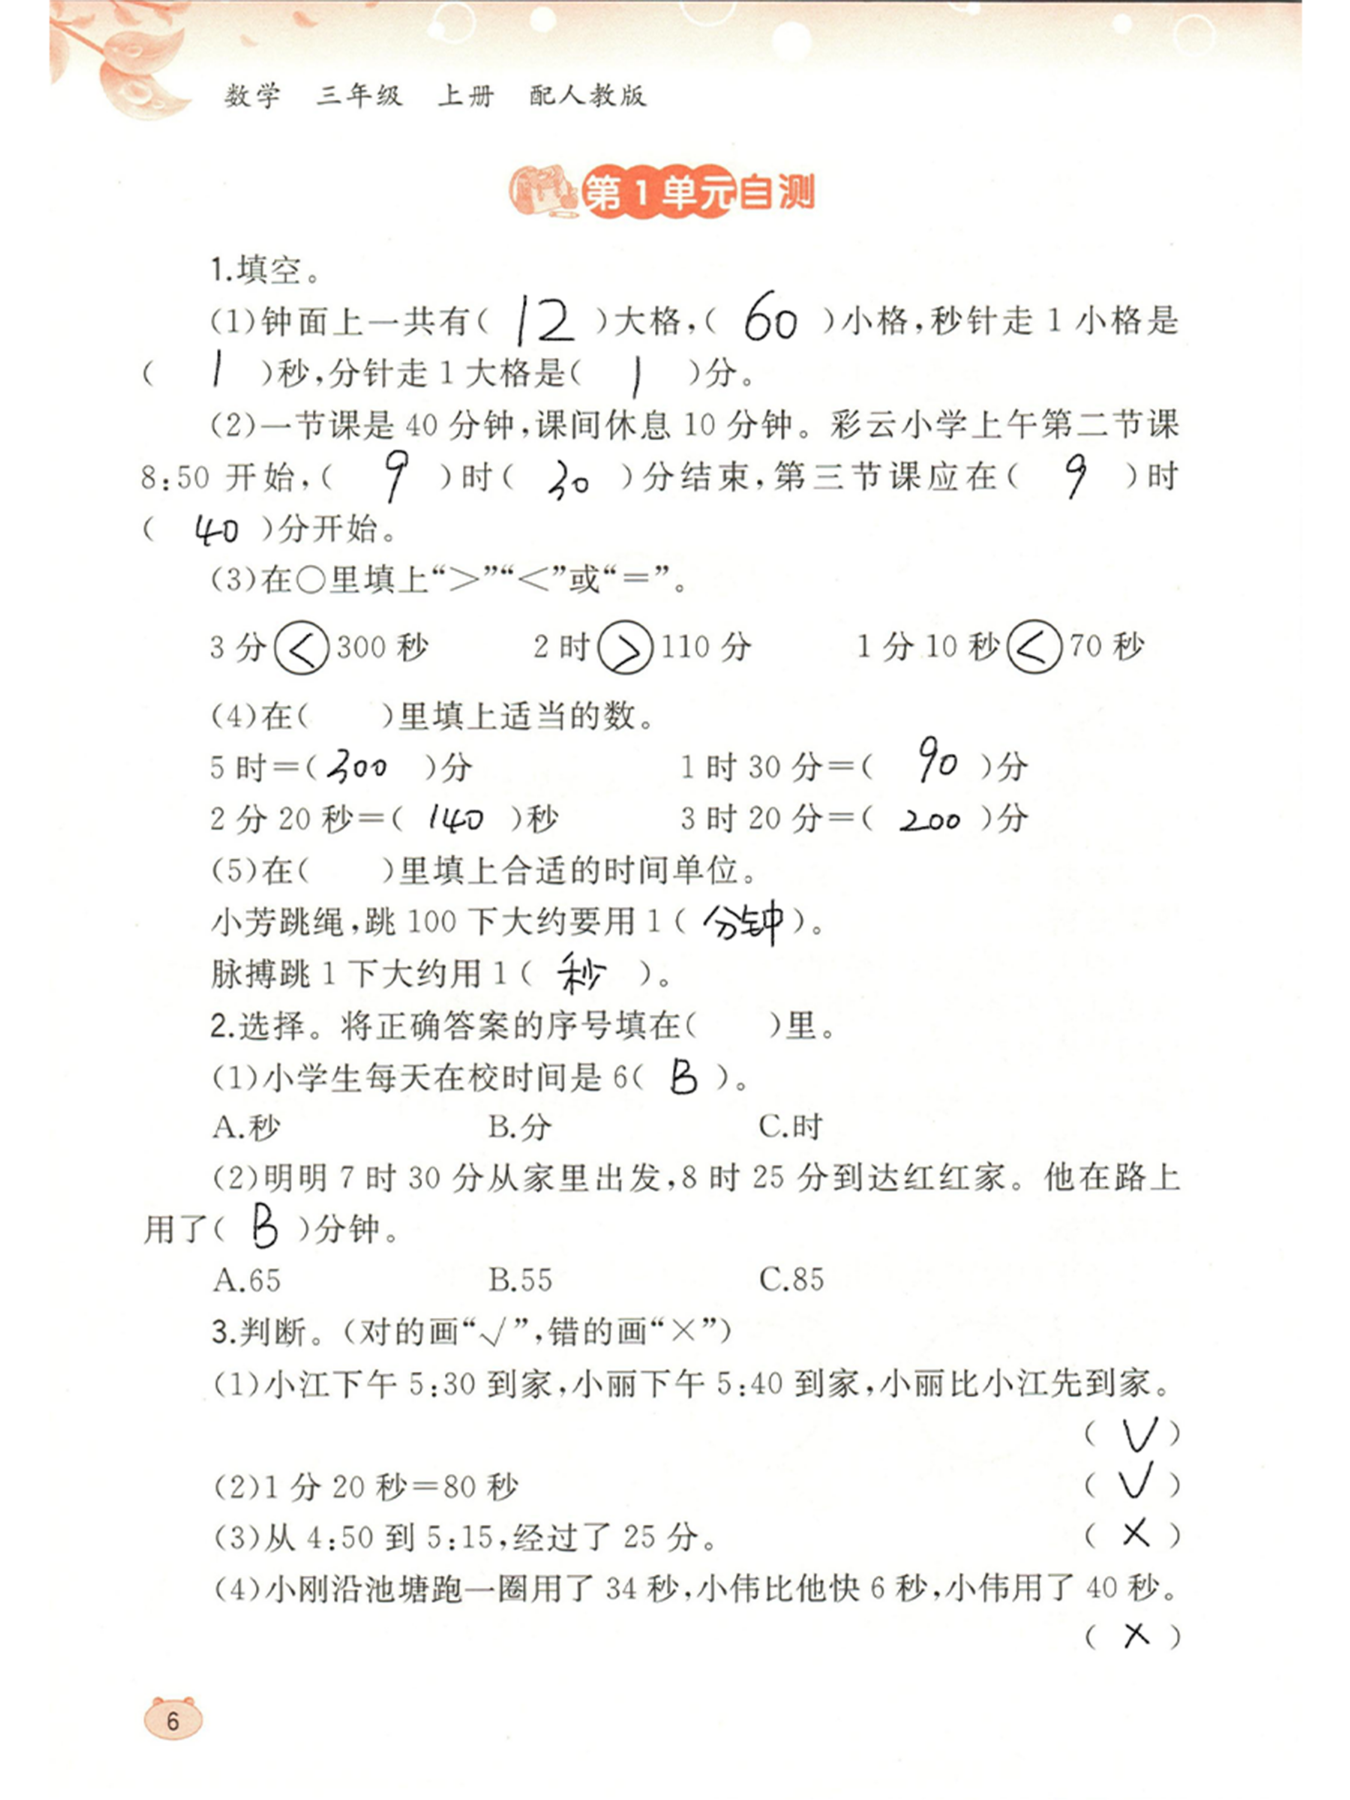 数学 三年级 上册 配人教版
第1单元自测
1.填空。
(1)钟面上一共有( 12 )大格,( 60 )小格,秒针走1小格是
( 1 )秒,分针走1大格是( 1 )分。
(2)一节课是40分钟,课间休息10分钟。彩云小学上午第二节课
8:50开始,( 9 )时( 30 )分结束,第三节课应在( 9 )时
( 40 )分开始。
(3)在○里填上“>”“<”或“=”。
3分<300秒 2时>110分 1分10秒<70秒
(4)在( )里填上适当的数。
5时=(300 )分 1时30分=( 90 )分
2分20秒=( 140 )秒 3时20分=( 200 )分
(5)在( )里填上合适的时间单位。
小芳跳绳,跳100下大约要用1(分钟)。
脉搏跳1下大约用1( 秒 )。
2.选择。将正确答案的序号填在( )里。
(1)小学生每天在校时间是6( B )。
A.秒 B.分 C.时
(2)明明7时30分从家里出发,8时25分到达红红家。他在路上
用了( B )分钟。
A.65 B.55 C.85
3.判断。(对的画“√”,错的画“×”)
(1)小江下午5:30到家,小丽下午5:40到家,小丽比小江先到家。
( √ )
(2)1分20秒=80秒 ( √ )
(3)从4:50到5:15,经过了25分。 ( × )
(4)小刚沿池塘跑一圈用了34秒,小伟比他快6秒,小伟用了40秒。
( × )
6